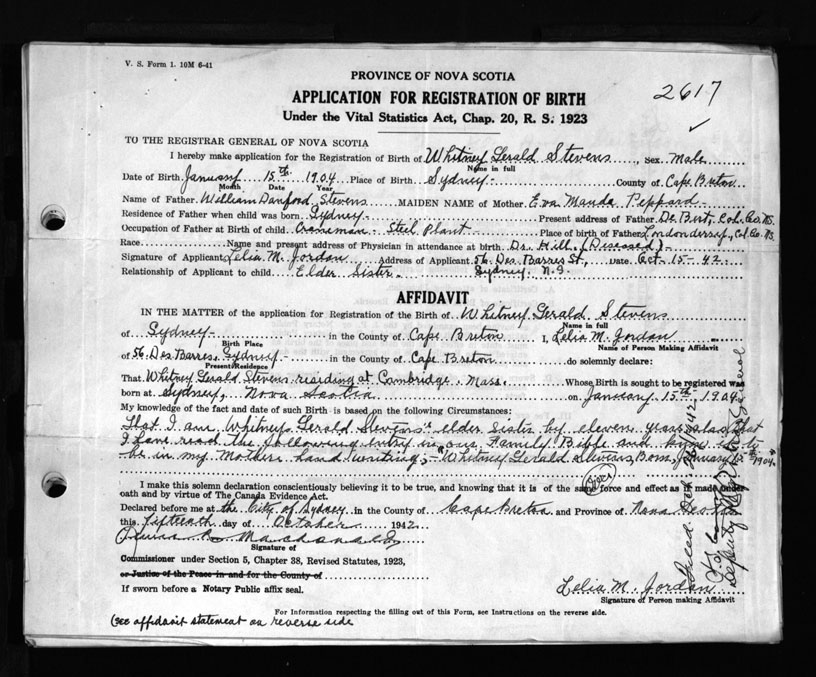 V. S. Form 1. 10M 6-41
PROVINCE OF NOVA SCOTIA
2617
APPLICATION FOR REGISTRATION OF BIRTH
Under the Vital Statistics Act, Chap. 20, R. S. 1923
TO THE REGISTRAR GENERAL OF NOVA SCOTIA
I hereby make application for the Registration of Birth of Whitney Gerald Stevens, Sex Male
Name in full
Date of Birth January 15th 1904 Place of Birth Sydney - County of Cape Breton
Month Date Year
Name of Father William Danford Stevens MAIDEN NAME of Mother Eva Manda Peppard
Residence of Father when child was born Sydney - Present address of Father De Bert, Col. Co. N.S.
Occupation of Father at Birth of child Craneman - Steel Plant Place of birth of Father Londonderry, Col. Co. N.S.
Race Name and present address of Physician in attendance at birth Dr. Hill (Deseased) -
Signature of Applicant Lelia M. Jordan Address of Applicant 56. Des Barres St, Date Oct- 15- 42.
Relationship of Applicant to child Elder Sister. Sydney, N.S.
AFFIDAVIT
IN THE MATTER of the application for Registration of the Birth of Whitney Gerald Stevens
Name in full
of Sydney - in the County of Cape Breton I, Lelia M. Jordan
Birth Place Name of Person Making Affidavit
of 56 Des Barres, Sydney - in the County of Cape Breton do solemnly declare:
Present Residence
That Whitney Gerald Stevens residing at Cambridge, Mass. Whose Birth is sought to be registered was
born at Sydney, Nova Scotia on January 15th, 1904
My knowledge of the fact and date of such Birth is based on the following Circumstances:
That I am Whitney Gerald Stevens' elder Sister by eleven years also that
I have read the following entry in our Family Bible and know it to
be in my Mothers hand writing; - Whitney Gerald Stevens Born, January 15th 1904"
over
I make this solemn declaration conscientiously believing it to be true, and knowing that it is of the same force and effect as if made under
oath and by virtue of The Canada Evidence Act.
Declared before me at the City of Sydney in the County of Cape Breton and Province of Nova Scotia
this fifteenth day of October 1942
Signature of
Commissioner under Section 5, Chapter 38, Revised Statutes, 1923,
or Justice of the Peace in and for the County of
If sworn before a Notary Public affix seal.
Lelia M. Jordan
Signature of Person making Affidavit
For Information respecting the filling out of this Form, see Instructions on the reverse side.
(see affidavit statement on reverse side
Deputy Registrar General